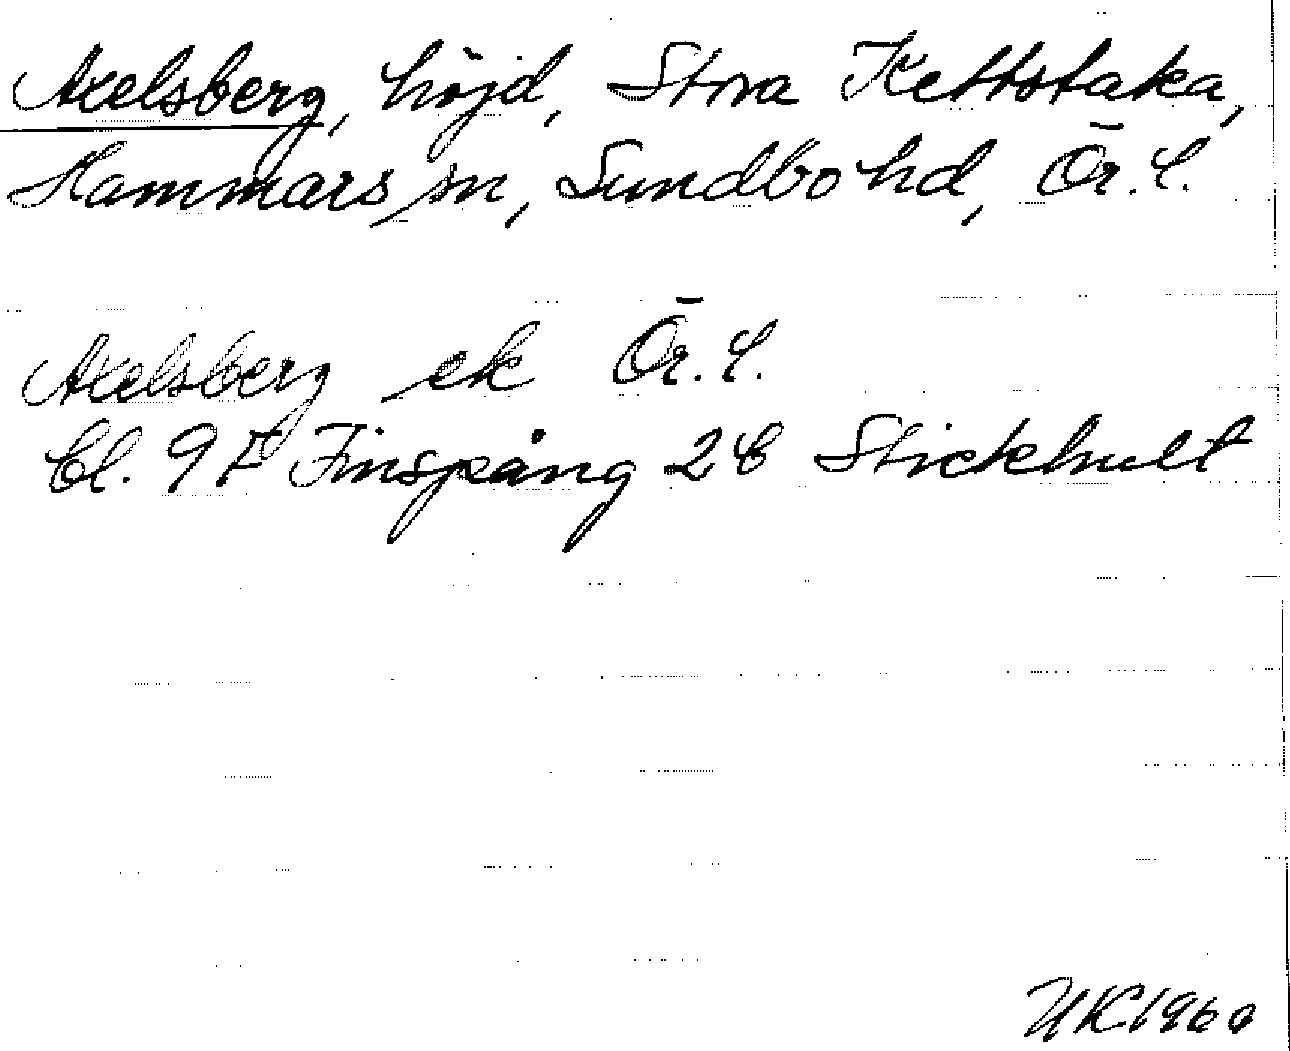 Axelsberg, höjd, Stora Kettstaka,
Hammars sn, Sundbo hd, Ör. L.
Axelsberg ek Ör. L.
Bl. 9F Finspång 2C Stickhult
UK 1960